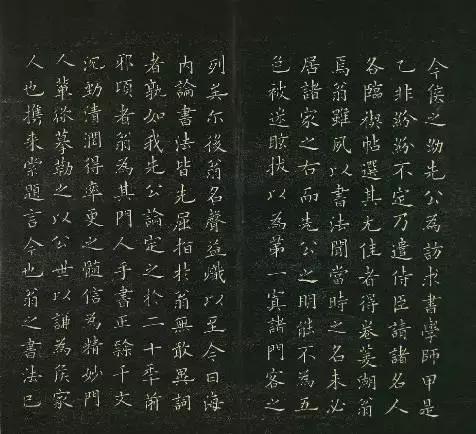 今侯之幼先公為訪求書學師甲是
乙非紛紛不定乃遣侍臣請諸名人
各臨禊帖選其尤佳者得卷菱湖翁
焉翁雖夙以書法聞當時之名未必
居諸家之右而先公之明能不為五
色被迷眩拔以為第一寘諸門客之
列矣尓後翁名聲益熾以至今日海
内論書法皆先屈指於翁無敢異詞
者孰如我先公論定之於二十季前
邪頃者翁為其門人手書正隸千文
沉勁清潤得率更之髓信為精妙門
人輩将摹勒之以公世以謙為侯家
人也携来索題言今也翁之書法已